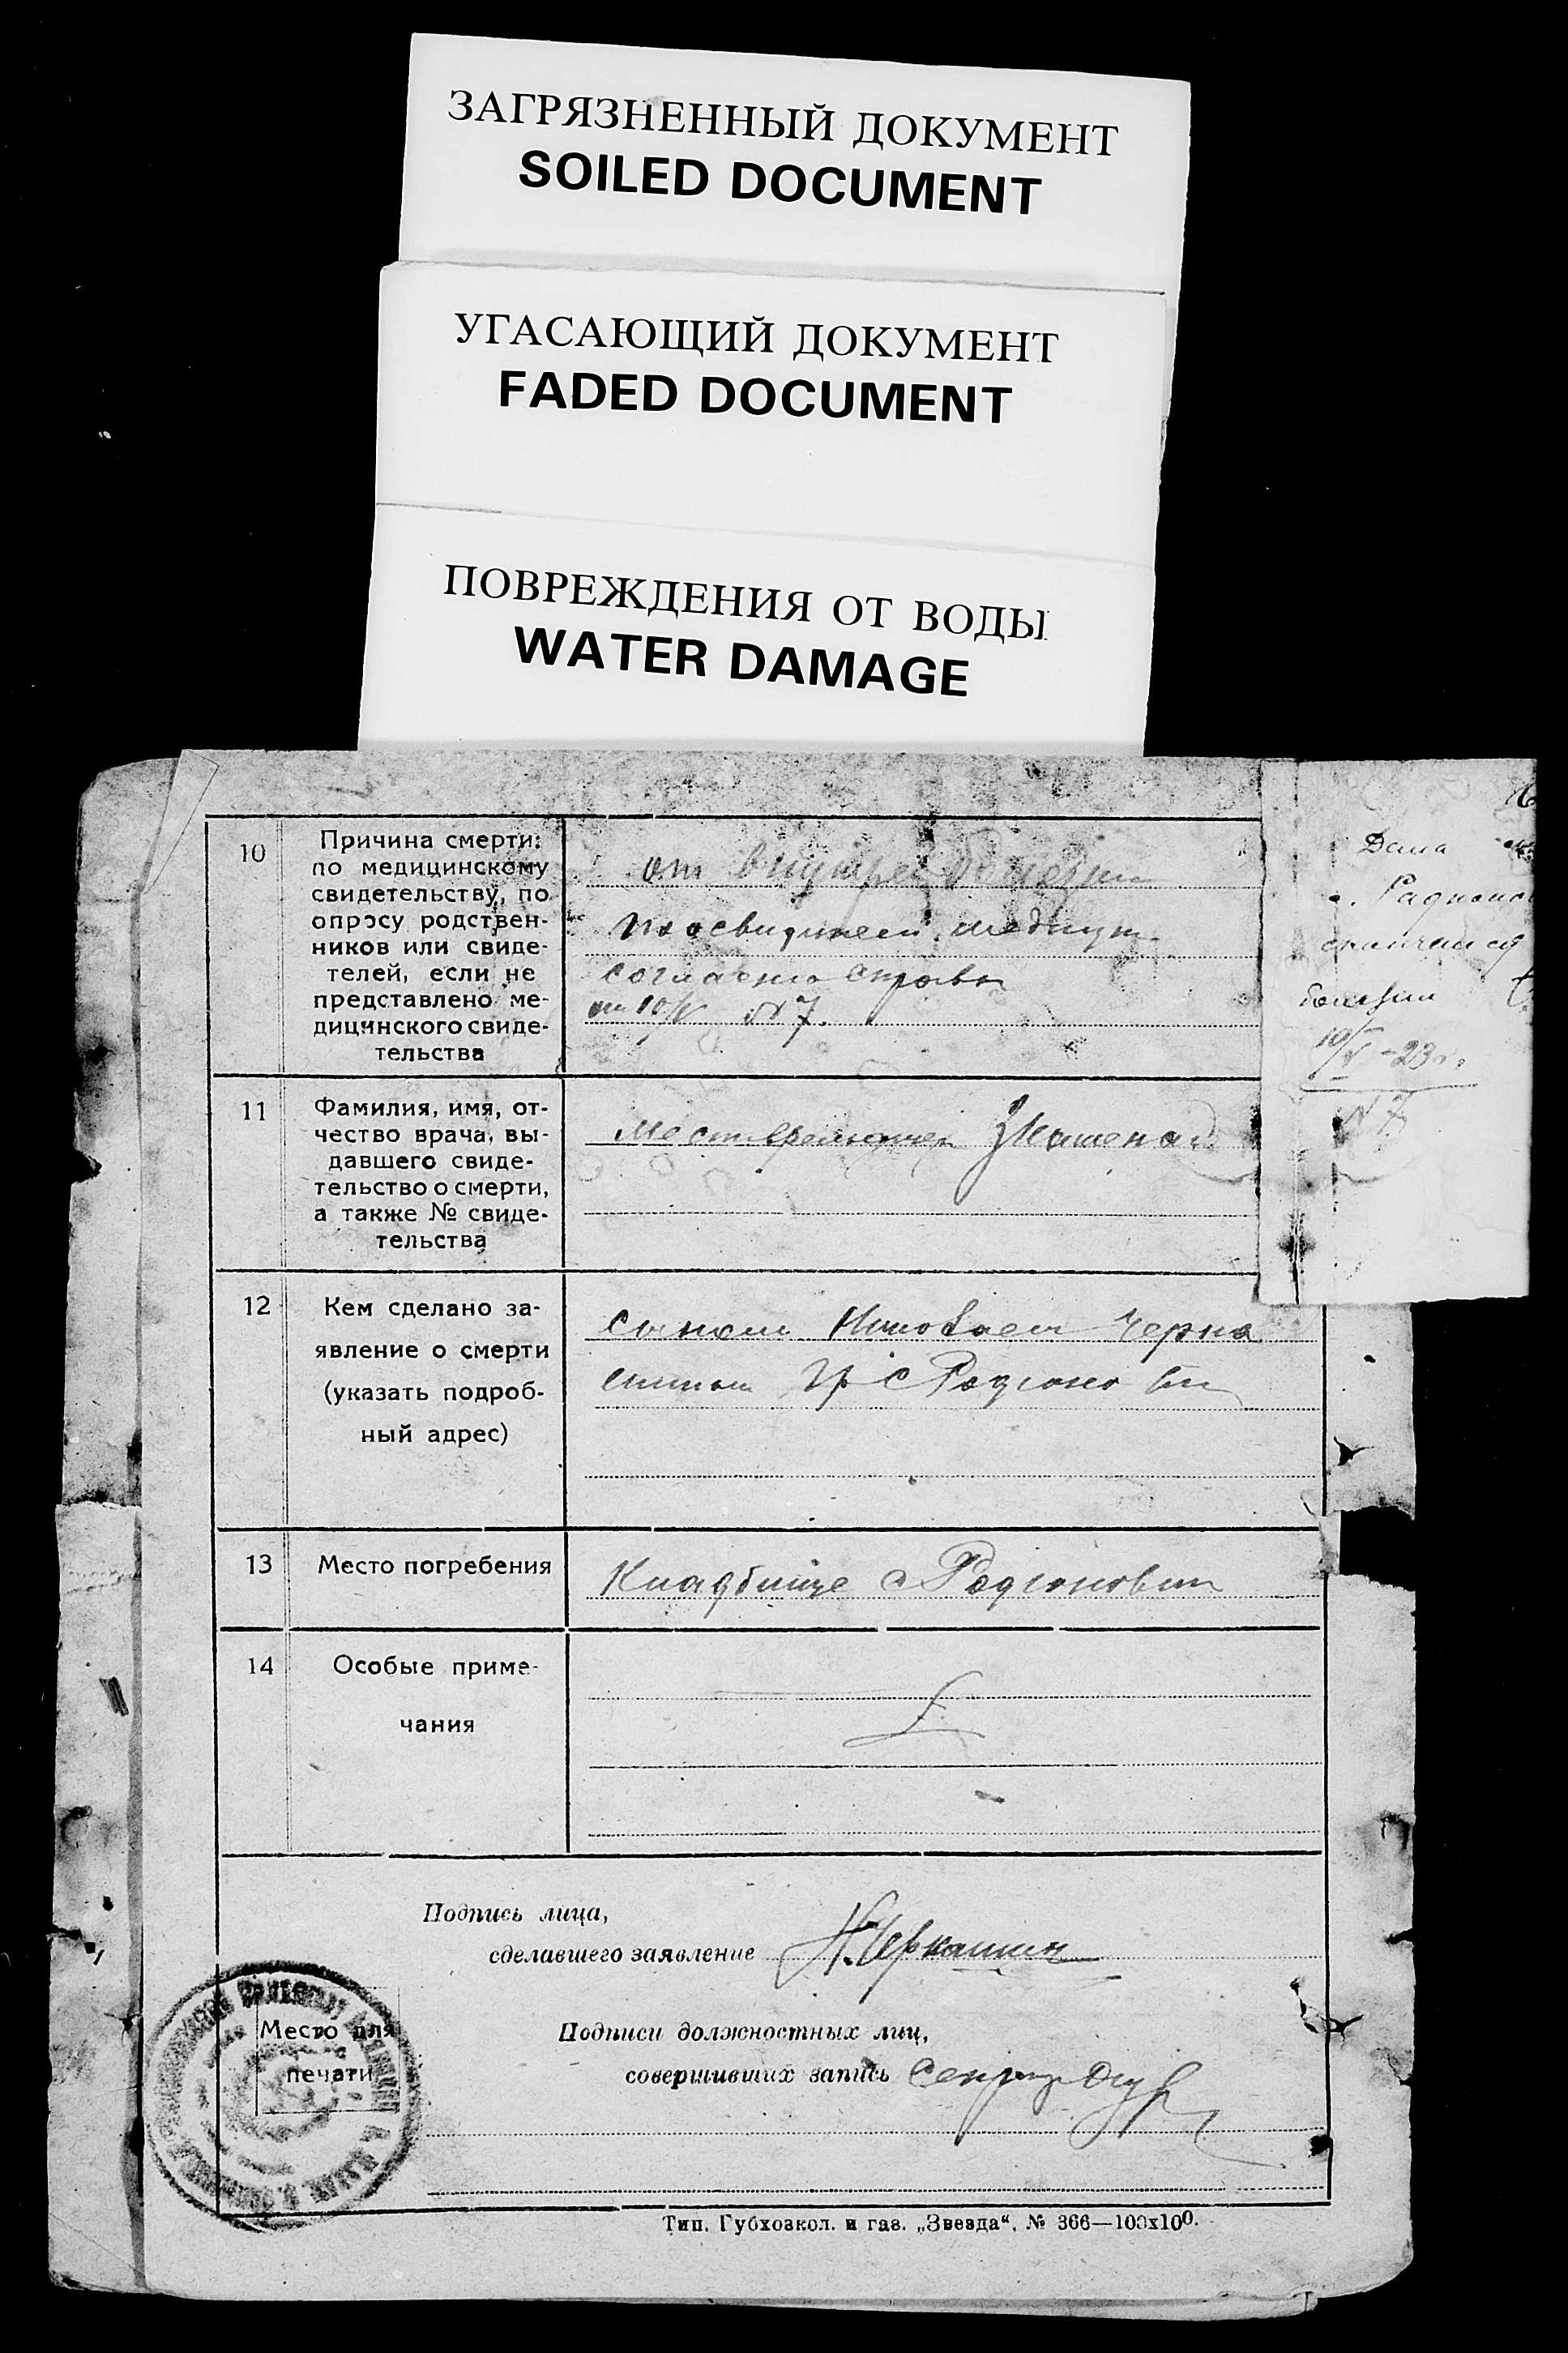 ЗАГРЯЗНЕННЫЙ ДОКУМЕНТ
SOILED DOCUMENT
УГАСАЮЩИЙ ДОКУМЕНТ
FADED DOCUMENT
ПОВРЕЖДЕНИЯ ОТ ВОДЫ
WATER DAMAGE
10
Причина смерти:
по медицинскому
свидетельству, по
опросу родствен-
ников или свиде-
телей, если не
представлено ме-
дицинского свиде-
тельства
от болезни
согласно справки
от 10/V N 7.
11
Фамилия, имя, от-
чество врача, вы-
давшего свиде-
тельство о смерти,
а также № свиде-
тельства
12
Кем сделано за-
явление о смерти
(указать подроб-
ный адрес)
сыном Николаем Черка
шиным гр с
13
Место погребения
Кладбище с Родионовки
14
Особые приме-
чания
Дана
скончался
болезни
10/V -23 г.
N 7
Подпись лица,
сделавшего заявление Н. Черкашин
Место для
печати
Подписи должностных лиц,
совершивших запись
Тип. Губхозкол. и газ. „Звезда“. № 366—100х100.